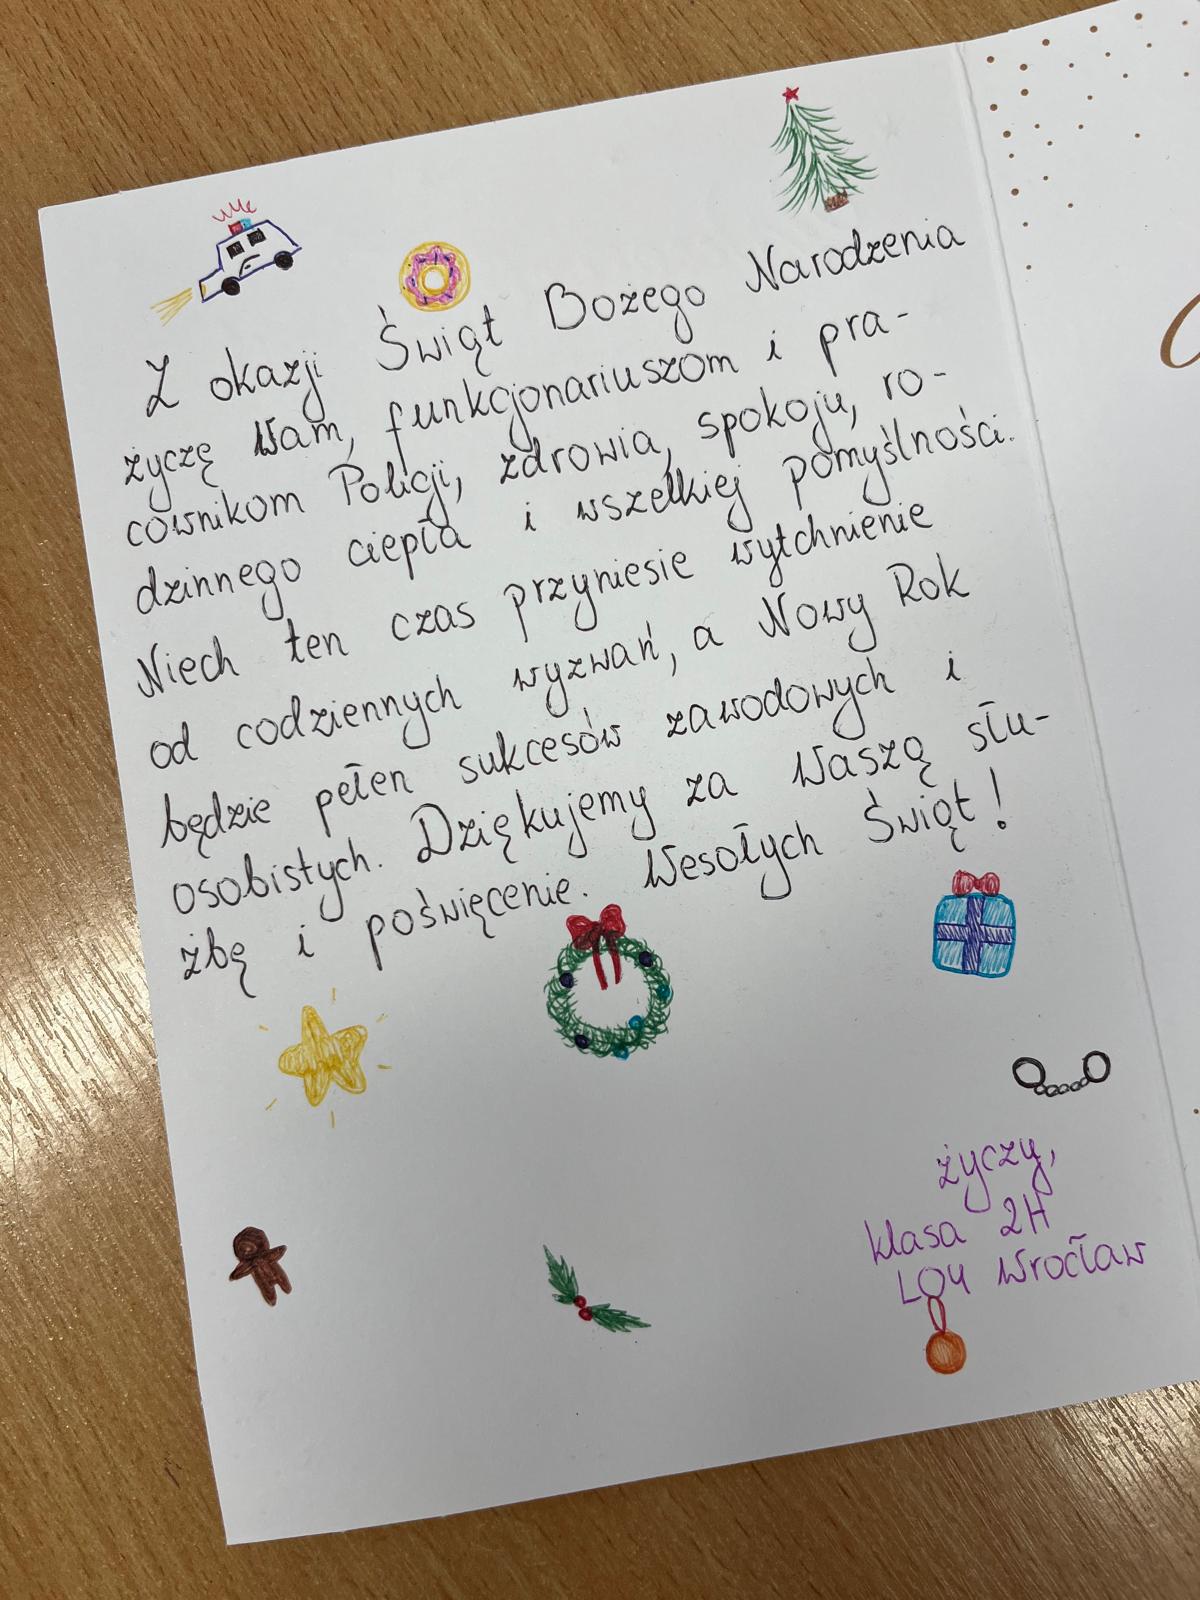 Z okazji Świąt Bożego Narodzenia
życzę Wam, funkcjonariuszom i pra-
cownikom Policji, zdrowia, spokoju, ro-
dzinnego ciepła i wszelkiej pomyślności.
Niech ten czas przyniesie wytchnienie
od codziennych wyzwań, a Nowy Rok
będzie pełen sukcesów zawodowych i
osobistych. Dziękujemy za Waszą słu-
żbę i poświęcenie. Wesołych Świąt!
życzy,
klasa 2H
LO4 Wrocław